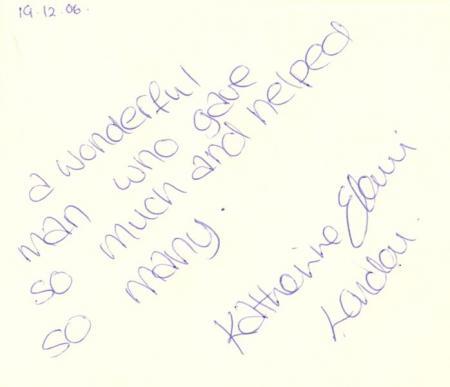 19.12.06.
a wonderful
man who gave
so much and helped
so many.
Katherine
London.